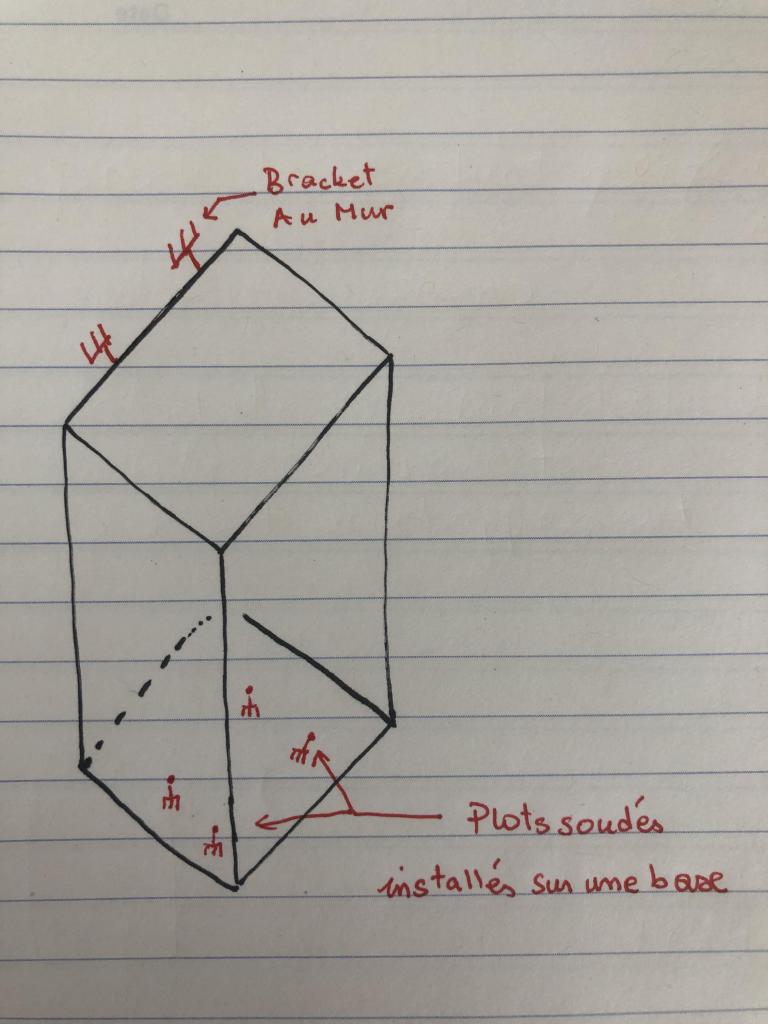 Bracket
Au Mur
Plots soudés
installés sur une base